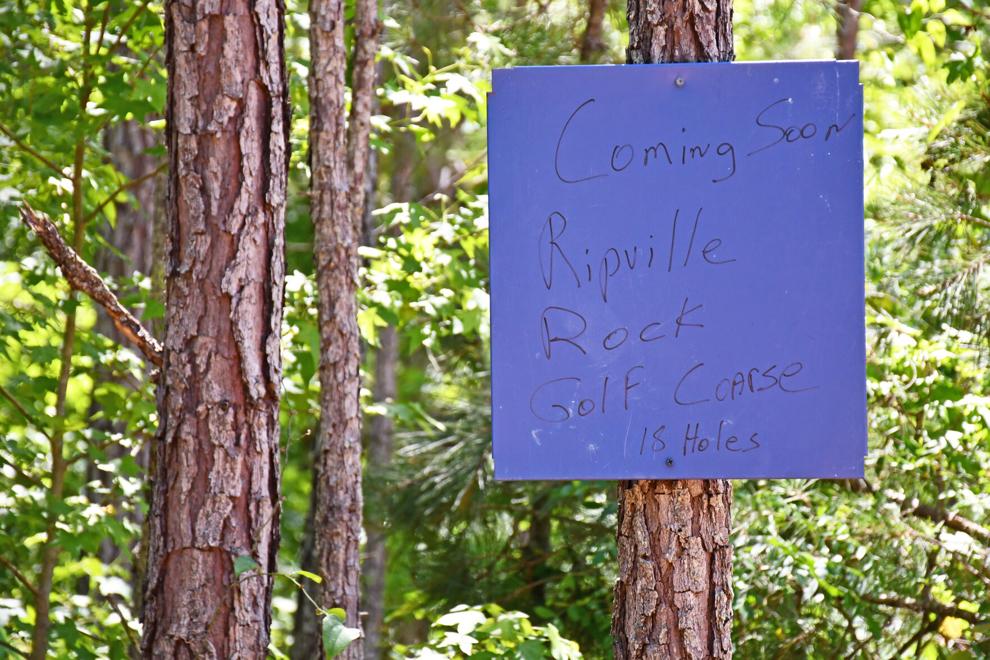 Coming Soon
Ripville
Rock
Golf Coarse
18 Holes